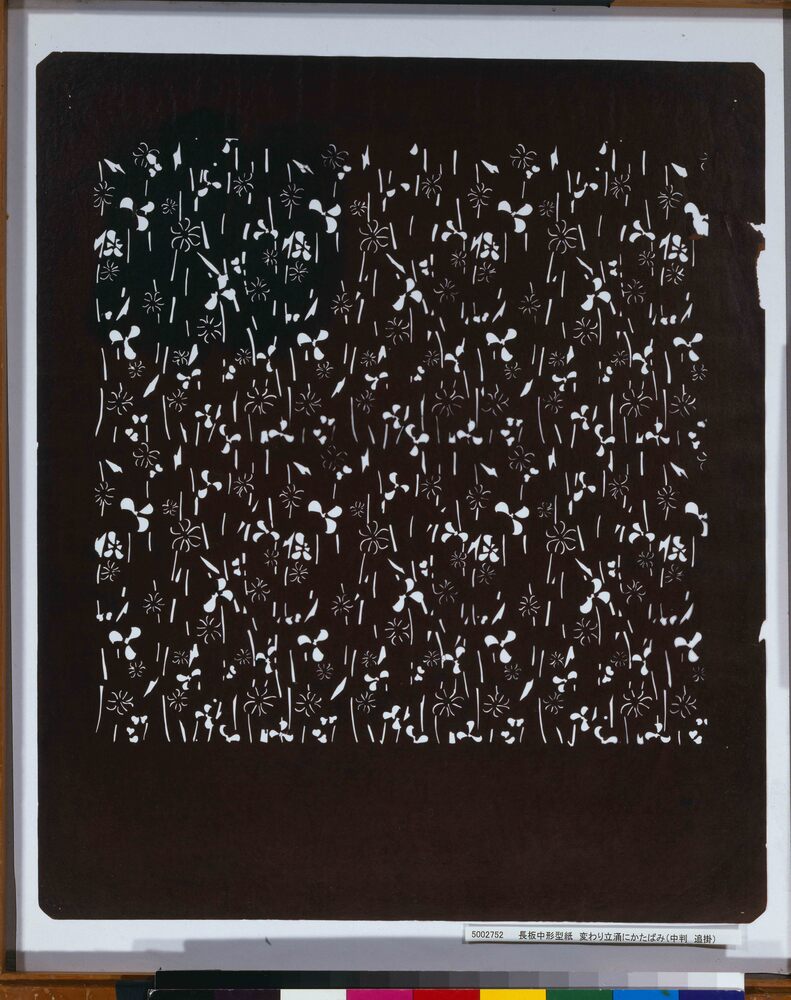 5002752 長板中形型紙 変わり立涌にかたばみ(中判 追掛)